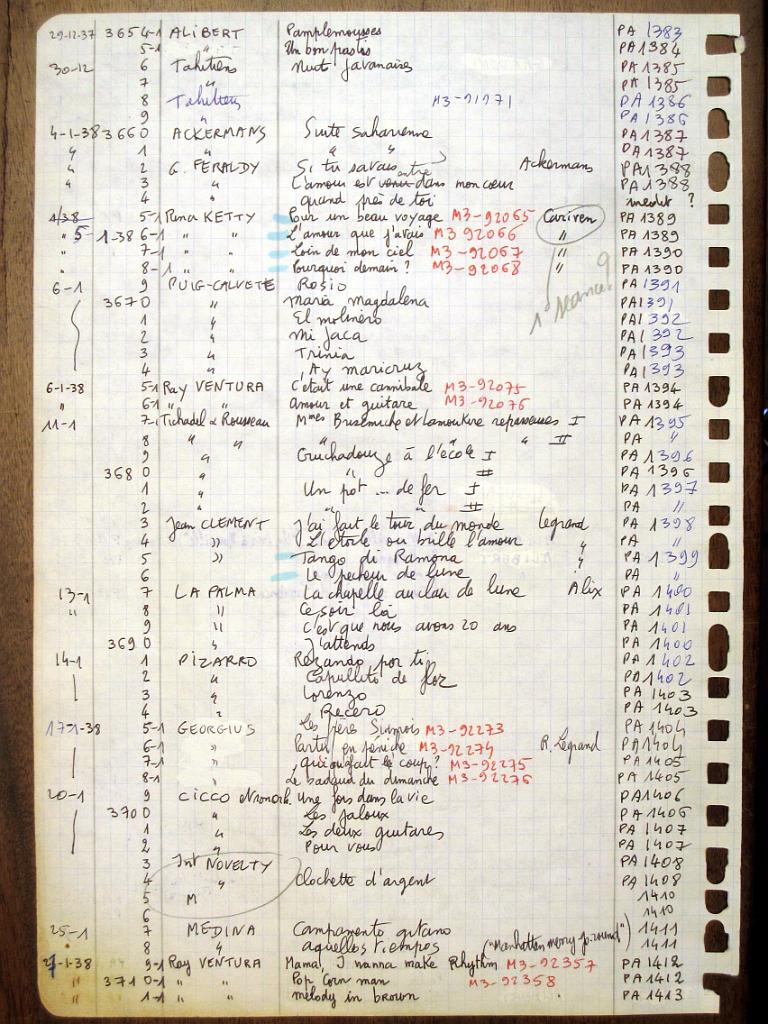 29-12-37 3654-1 ALIBERT Pamplemousses PA 1383
5-1 " Un bon pastis PA 1384
30-12 6 Tahitiens Nuit Javanaises PA 1385
7 " PA 1385
8 Tahitiens M3-91971 PA 1386
9 " PA 1386
4-1-38 3660 ACKERMANS Suite saharienne PA 1387
" 1 " " " PA 1387
" 2 G. FERALDY Si tu savais Ackermans PA 1388
" 3 " L'amour est entre dans mon cœur PA 1388
4 " quand près de toi inedit ?
1/38 5-1 Rina KETTY Pour un beau voyage M3-92065 Cariven PA 1389
" 5-1-38 6-1 " " L'amour que j'avais M3 92066 " PA 1389
" 7-1 " " Loin de mon ciel M3-92067 " PA 1390
" 8-1 " " Pourquoi demain ? M3-92068 " PA 1390
6-1 9 PUIG-CALVETE Rosio PA 1391
3670 " Maria Magdalena PA 1391
1 " El molinero PA 1392
1e séance ?
2 " Mi jaca PA 1392
3 " Trinia PA 1393
4 " Ay maricruz PA 1393
6-1-38 5-1 Ray VENTURA C'était une cannibale M3-92075 PA 1394
" 6-1 " " Amour et guitare M3-92076 PA 1394
11-1 7-1 Tichadel & Rousseau Mmes et repasseuses I PA 1395
8 " " " " " II PA "
9 " à l'école I PA 1396
3680 " " II PA 1396
1 " Un pot ... de fer I PA 1397
2 " " " II PA "
3 Jean CLEMENT J'ai fait le tour du monde Legrand PA 1398
4 " L'étoile ou brille l'amour " PA "
5 " Tango di Ramona " PA 1399
6 Le pecheur de lune PA "
13-1 7 LA PALMA La chapelle au clair de lune Alix PA 1400
" 8 " Ce soir là PA 1401
9 " C'est que nous avons 20 ans PA 1401
3690 J'attends PA 1400
14-1 1 PIZARRO Rezando por ti PA 1402
2 " Capullito de flor PA 1402
3 " Lorenzo PA 1403
4 " Recero PA 1403
17-1-38 5-1 GEORGIUS Les M3-92273 PA 1404
6-1 " Partir en M3-92274 R. Legrand PA 1404
7-1 " qui ou fait le coup ? M3-92275 PA 1405
8-1 Le badaud du dimanche M3-92276 PA 1405
20-1 9 CICCO et Une fois dans la vie PA 1406
3700 " Les jaloux PA 1406
1 " Les deux guitares PA 1407
2 " Pour vous PA 1407
3 Int NOVELTY PA 1408
4 " Clochette d'argent PA 1408
5 M 1410
6 1410
25-1 7 MEDINA Campamento gitano 1411
8 " aquellos tiempos ("Manhattan merry go-round") 1411
27-1-38 9-1 Ray VENTURA Mama, I wanna make Rhythm M3-92357 PA 1412
" 3710-1 " " Pop corn man M3-92358 PA 1412
" 1-1 " " Melody in brown PA 1413